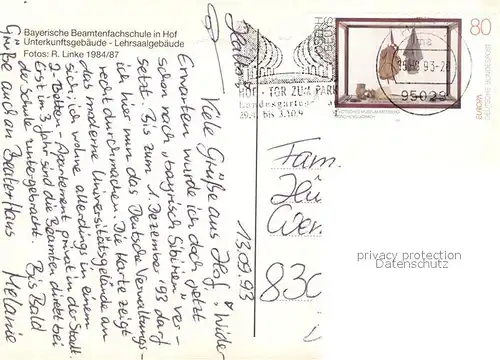 Bayerische Beamtenfachschule in Hof
Unterkunftsgebäude - Lehrsaalgebäude
Fotos: R. Linke 1984/87
13.09.93
Hallo
Viele Grüße aus Hof! Wider
Erwarten wurde ich doch jetzt
schon nach "bayrisch Sibirien" ver-
setzt. Bis zum 1. Dezember '93 darf
ich hier nun das Deutsche Verwaltungs-
recht durchmachen. Die Karte zeigt
das moderne Universitätsgelände an
sich, ich wohne allerdings in einem
2-Betten-Apartement privat in der Stadt.
Erst im 3. Jahr sind die Beamten direkt bei
der Schule untergebracht. Bis Bald
Grüße auch an Beate+Hans Melanie
HOF - TOR ZUM PARK
Landesgarten
29.4. bis 3.10.9
93-20
95028
80
EUROPA
DEUTSCHE BUNDESPOST
Fam.
830
privacy protection
Datenschutz